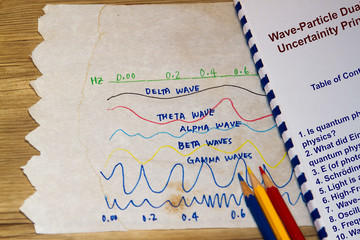 Hz 0.00 0.2 0.4 0.6
DELTA WAVE
THETA WAVE
ALPHA WAVE
BETA WAVES
GAMMA WAVES
0.00 0.2 0.4 0.6 0.
Wave-Particle Dua
Uncertainty Prin
Table of Cont
1. Is quantum p
physics?
2. What did Ein
quantum physi
3. E (of phys
4. Schrödin
5. Light is
6. High-Fr
7. Wave-
8. Oscill
9. Freq
10. Wa